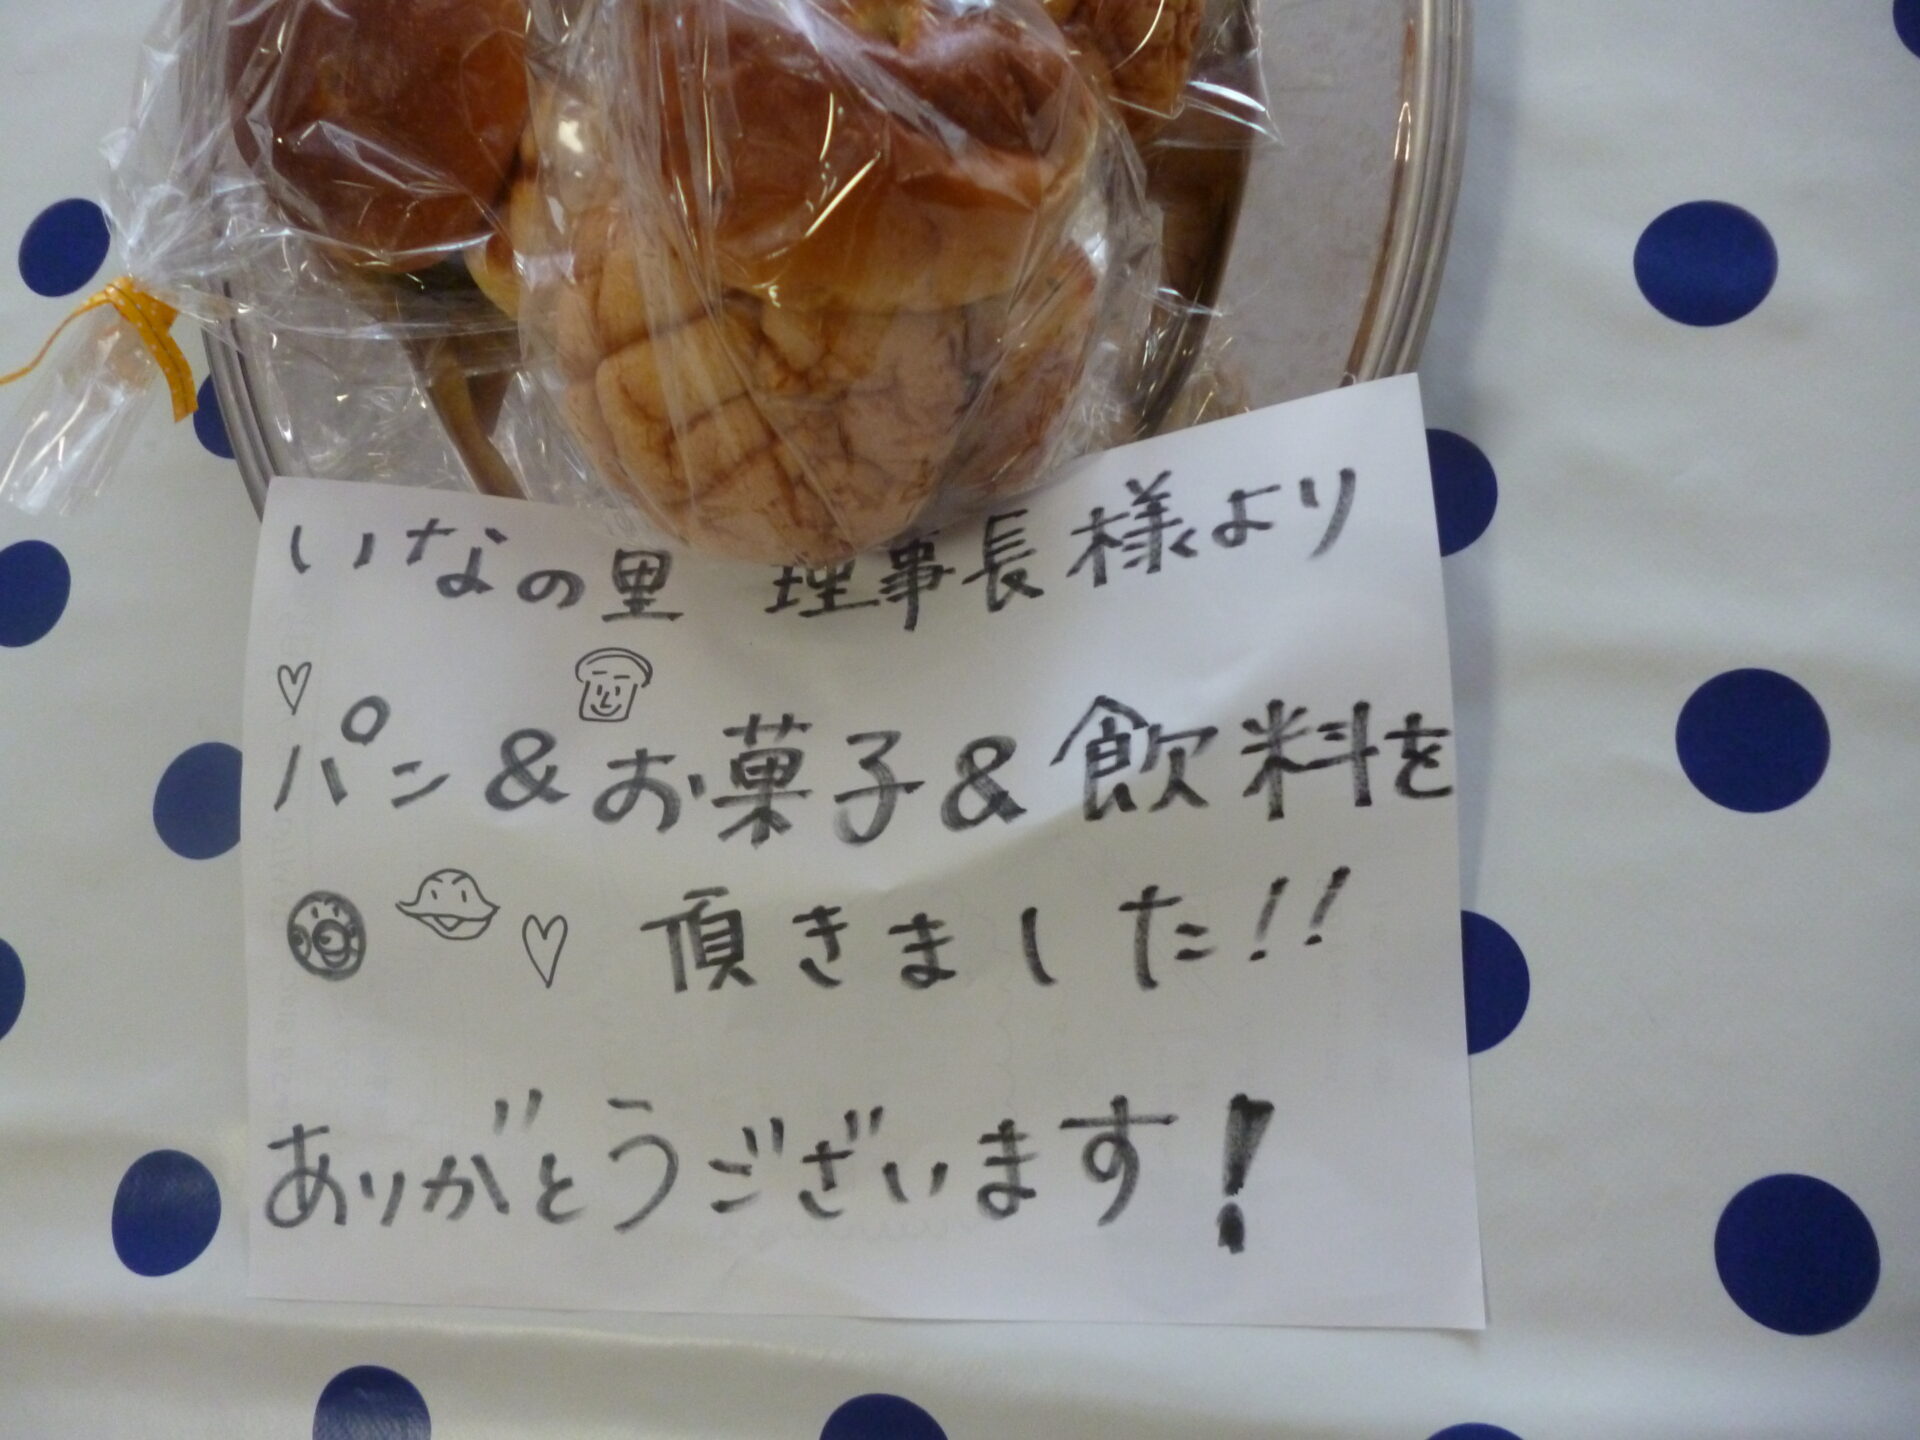 いなの里 理事長様より
パン&お菓子&飲料を
頂きました!!
ありがとうございます!